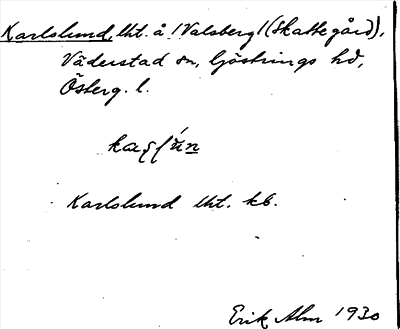 Karlslund, lht. å /Valsberg/ (skattegård),
Väderstad sn, Göstrings hd,
Österg. l.
Karlslund lht. kb.
Erik Alm 1930